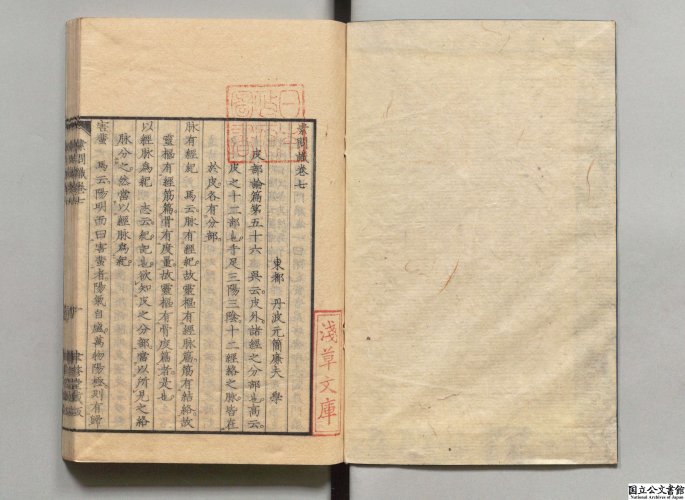 素問識卷七
東都 丹波元簡廉夫 學
皮部論篇第五十六 吳云皮外諸經之分部也高云
皮之十二部也手足三陽三陰十二經絡之脉皆在
於皮各有分部
脉有經紀 馬云脉有經紀故靈樞有經脉篇筋有結絡故
靈樞有經筋篇骨有度量故靈樞有骨度篇者是也
以經脉爲紀 志云紀記也欲知皮之分部當以所見之絡
脉分之然當以經脉爲紀
害蜚 馬云陽明而曰害蜚者陽氣自盛萬物陽極則有歸
素問識卷七
淺草文庫
国立公文書館
National Archives of Japan